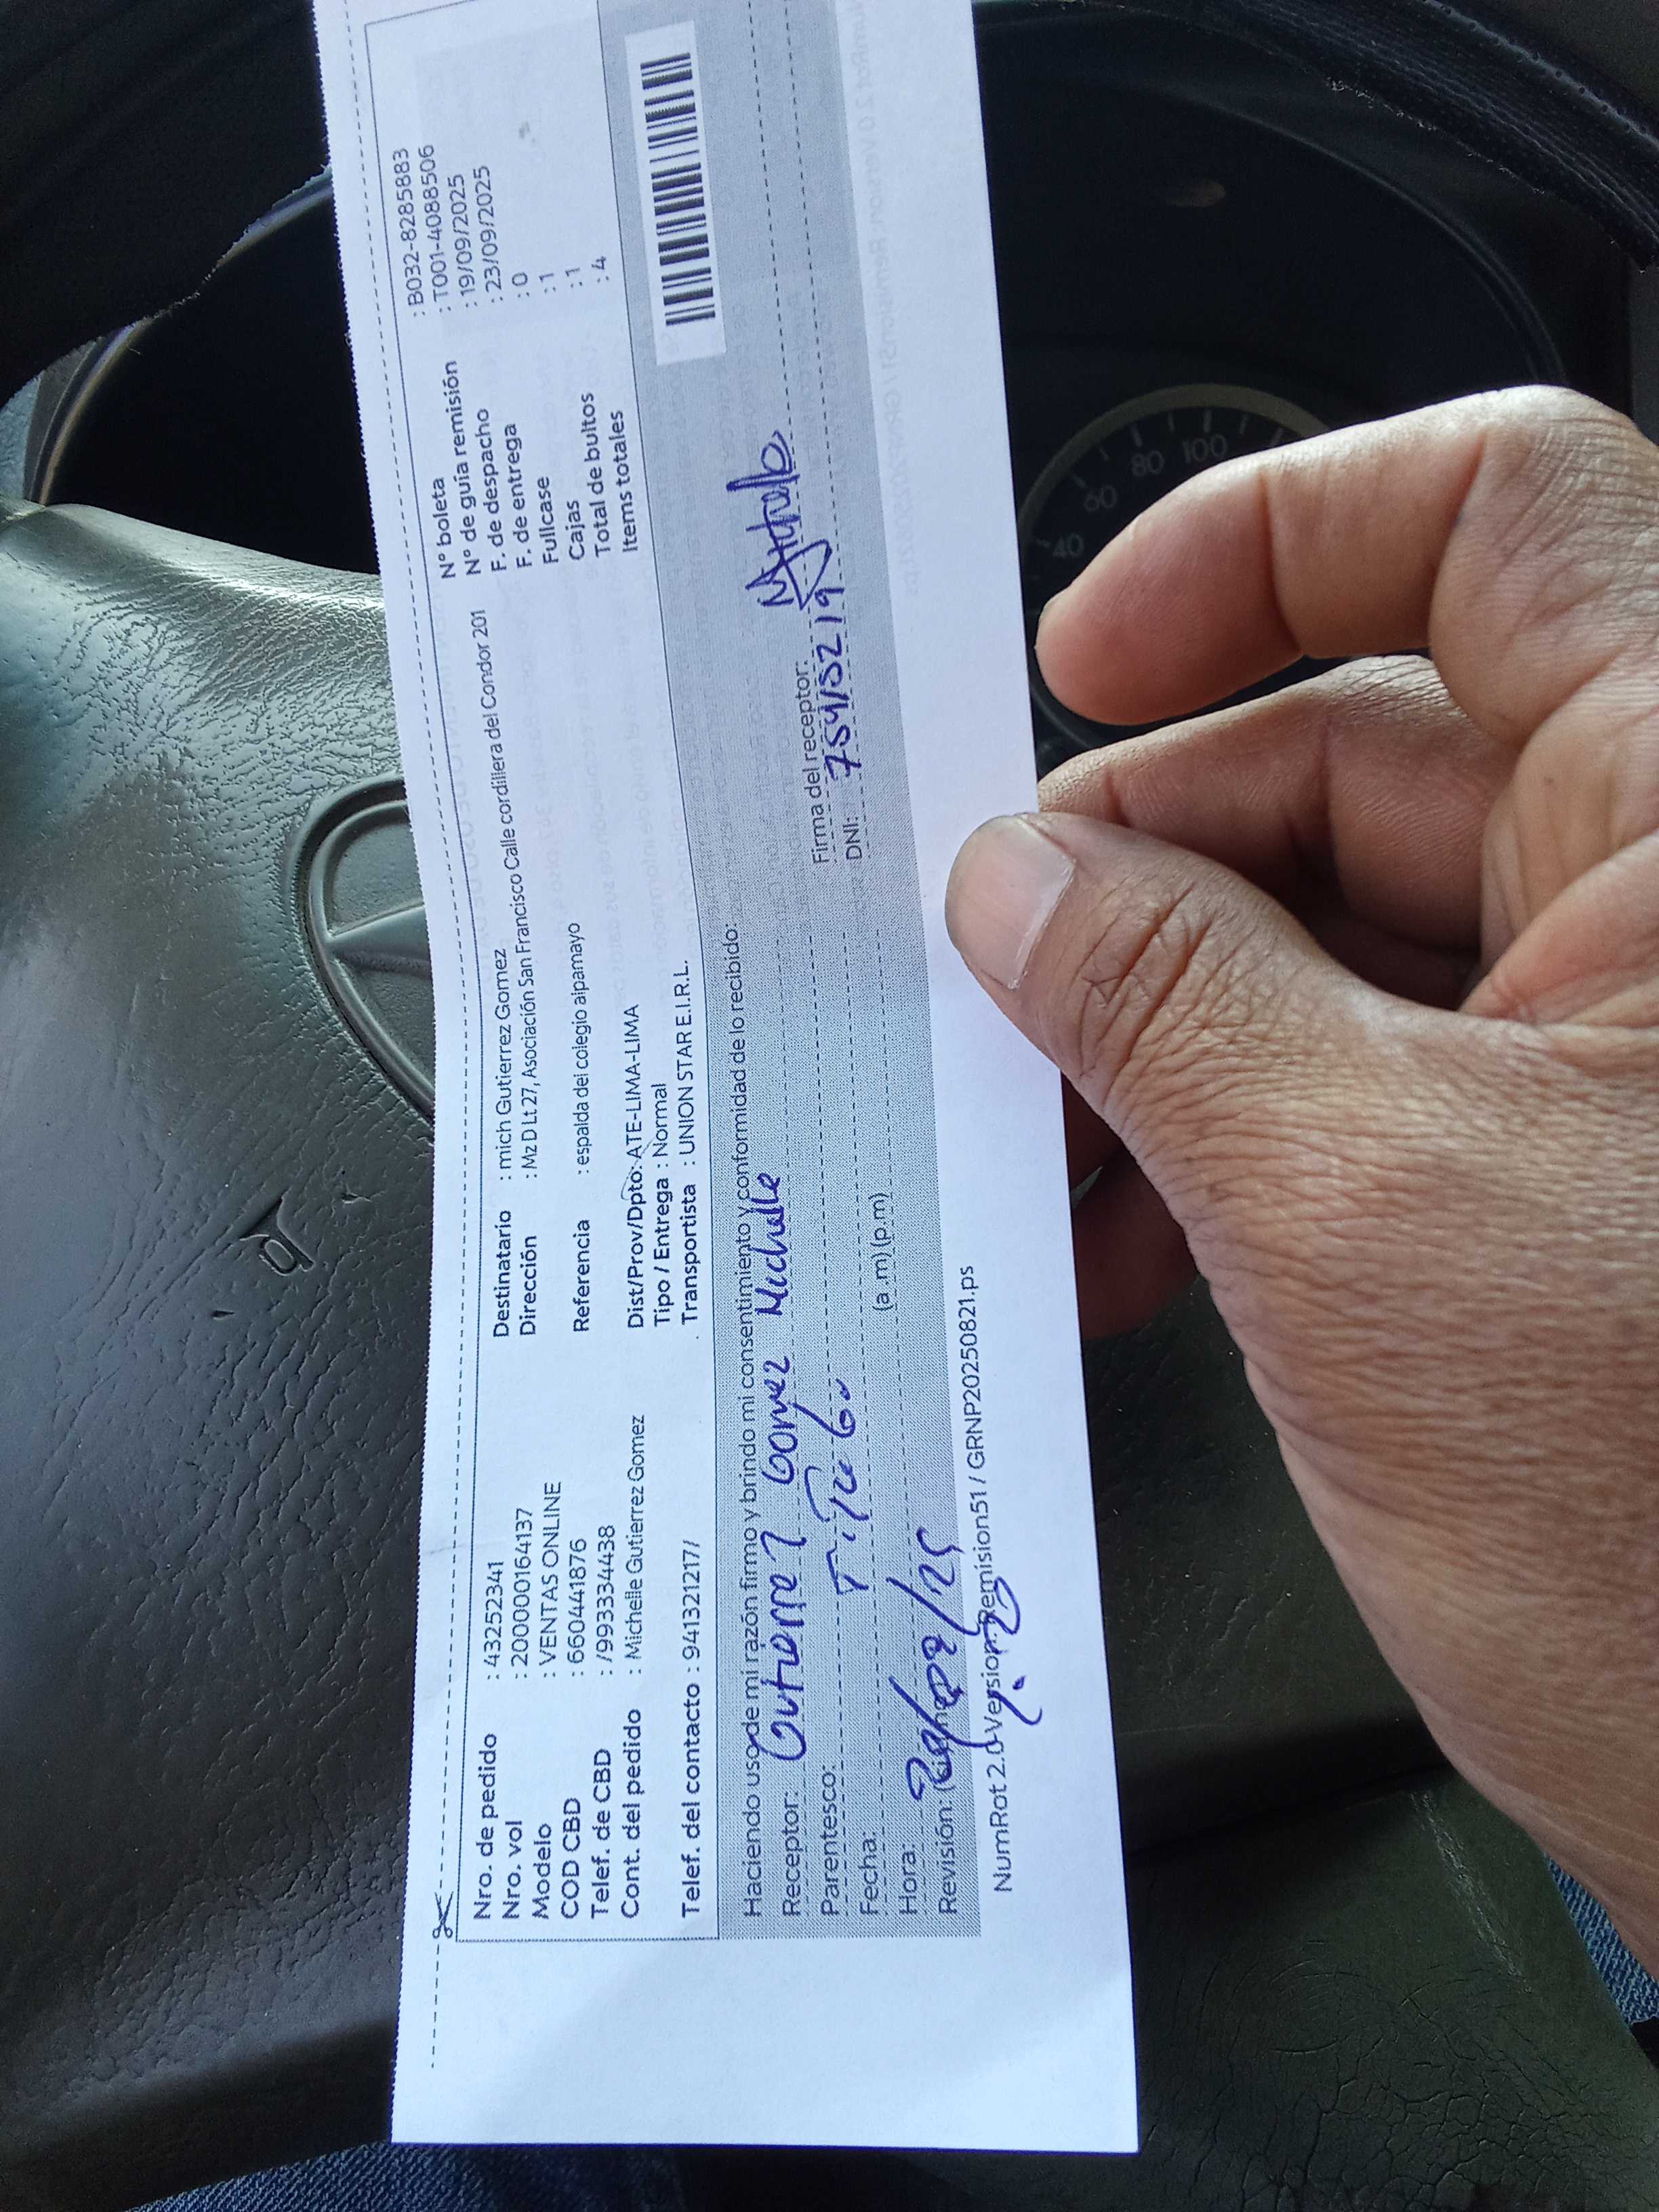 Nro. de pedido : 43252341
Nro. vol : 200000164137
Modelo : VENTAS ONLINE
COD CBD : 660441876
Telef. de CBD : /993334438
Cont. del pedido : Michelle Gutierrez Gomez
Telef. del contacto : 941321217/
Destinatario : mich Gutierrez Gomez
Dirección : Mz D Lt 27, Asociación San Francisco Calle cordillera del Condor 201
Referencia : espalda del colegio alpamayo
Dist/Prov/Dpto: ATE-LIMA-LIMA
Tipo / Entrega : Normal
Transportista : UNION STAR E.I.R.L.
N° boleta : B032-8285883
N° de guía remisión : T001-4088506
F. de despacho : 19/09/2025
F. de entrega : 23/09/2025
Fullcase : 0
Cajas : 1
Total de bultos : 1
Items totales : 4
Haciendo uso de mi razón firmo y brindo mi consentimiento y conformidad de lo recibido:
Receptor: Gutierrez Gomez Michelle
Parentesco:
Fecha:
Hora: (a .m) (p.m)
Revisión:
Firma del receptor:
DNI:
NumRot 2.0 Version: Remision51 / GRNP20250821.ps
40 60 80 100